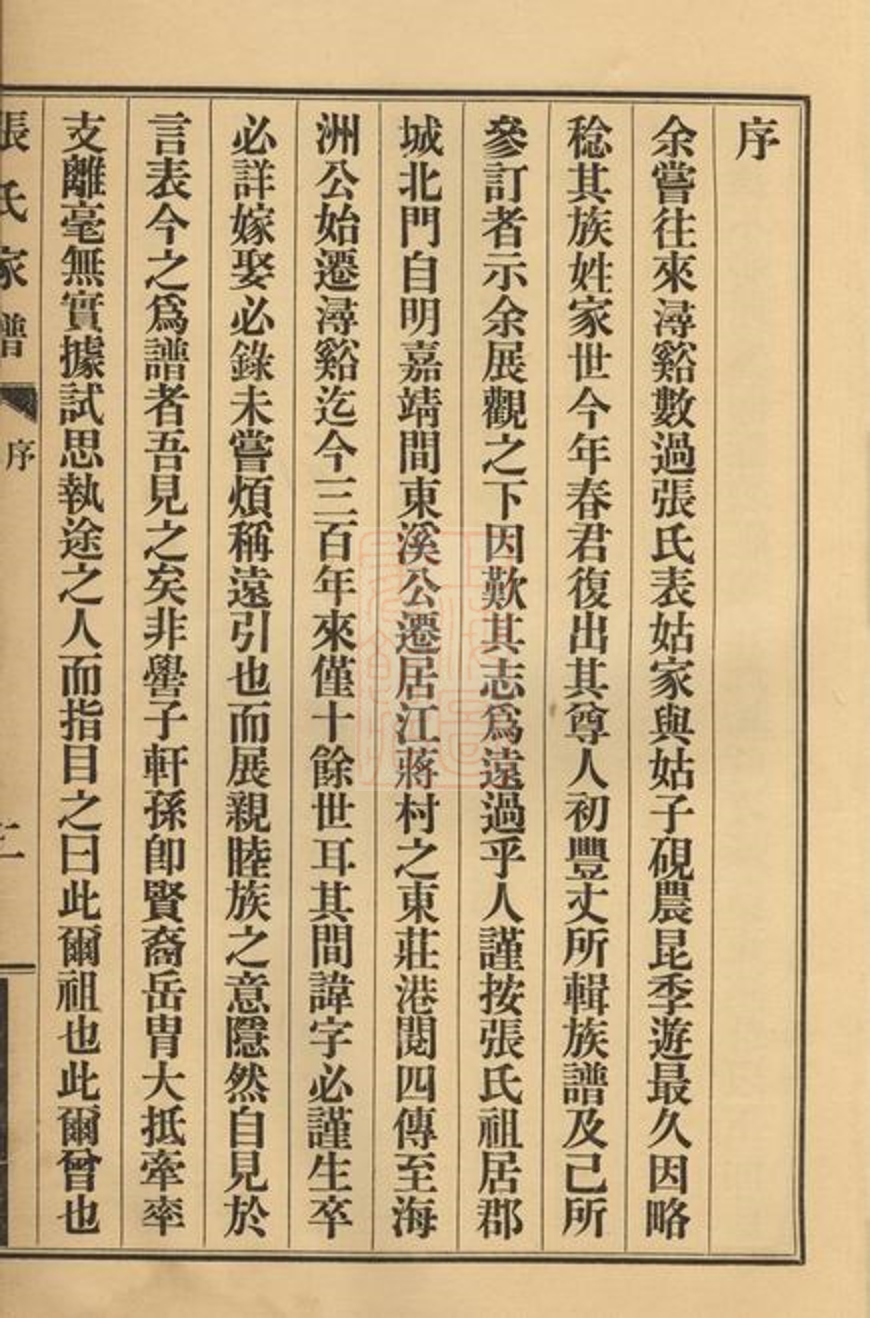 序
余嘗往來潯谿數過張氏表姑家與姑子硯農昆季遊最久因略
稔其族姓家世今年春君復出其尊人初豐丈所輯族譜及己所
參訂者示余展觀之下因歎其志爲遠過乎人謹按張氏祖居郡
城北門自明嘉靖間東溪公遷居江蔣村之東莊港閱四傳至海
洲公始遷潯谿迄今三百年來僅十餘世耳其間諱字必謹生卒
必詳嫁娶必錄未嘗煩稱遠引也而展親睦族之意隱然自見於
言表今之爲譜者吾見之矣非嚳子軒孫卽賢裔岳胄大抵牽率
支離毫無實據試思執途之人而指目之曰此爾祖也此爾曾也
張氏家譜
序
二